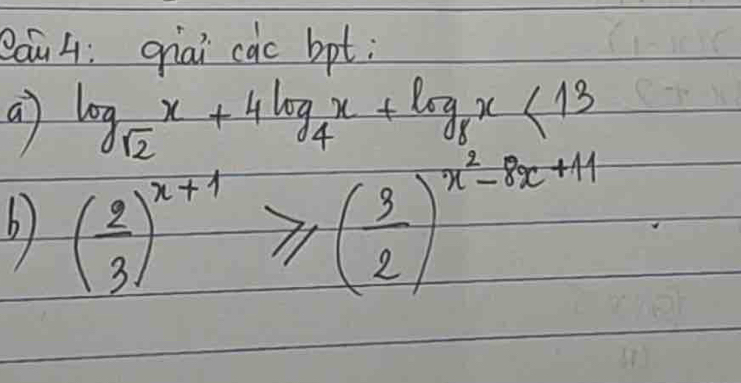 Câu 4: giải các bpt:
a) log_{√2} x + 4 log_4 x + log_8 x < 13
b) (2/3)^{x+1} ⩾ (3/2)^{x^2 - 8x + 11}